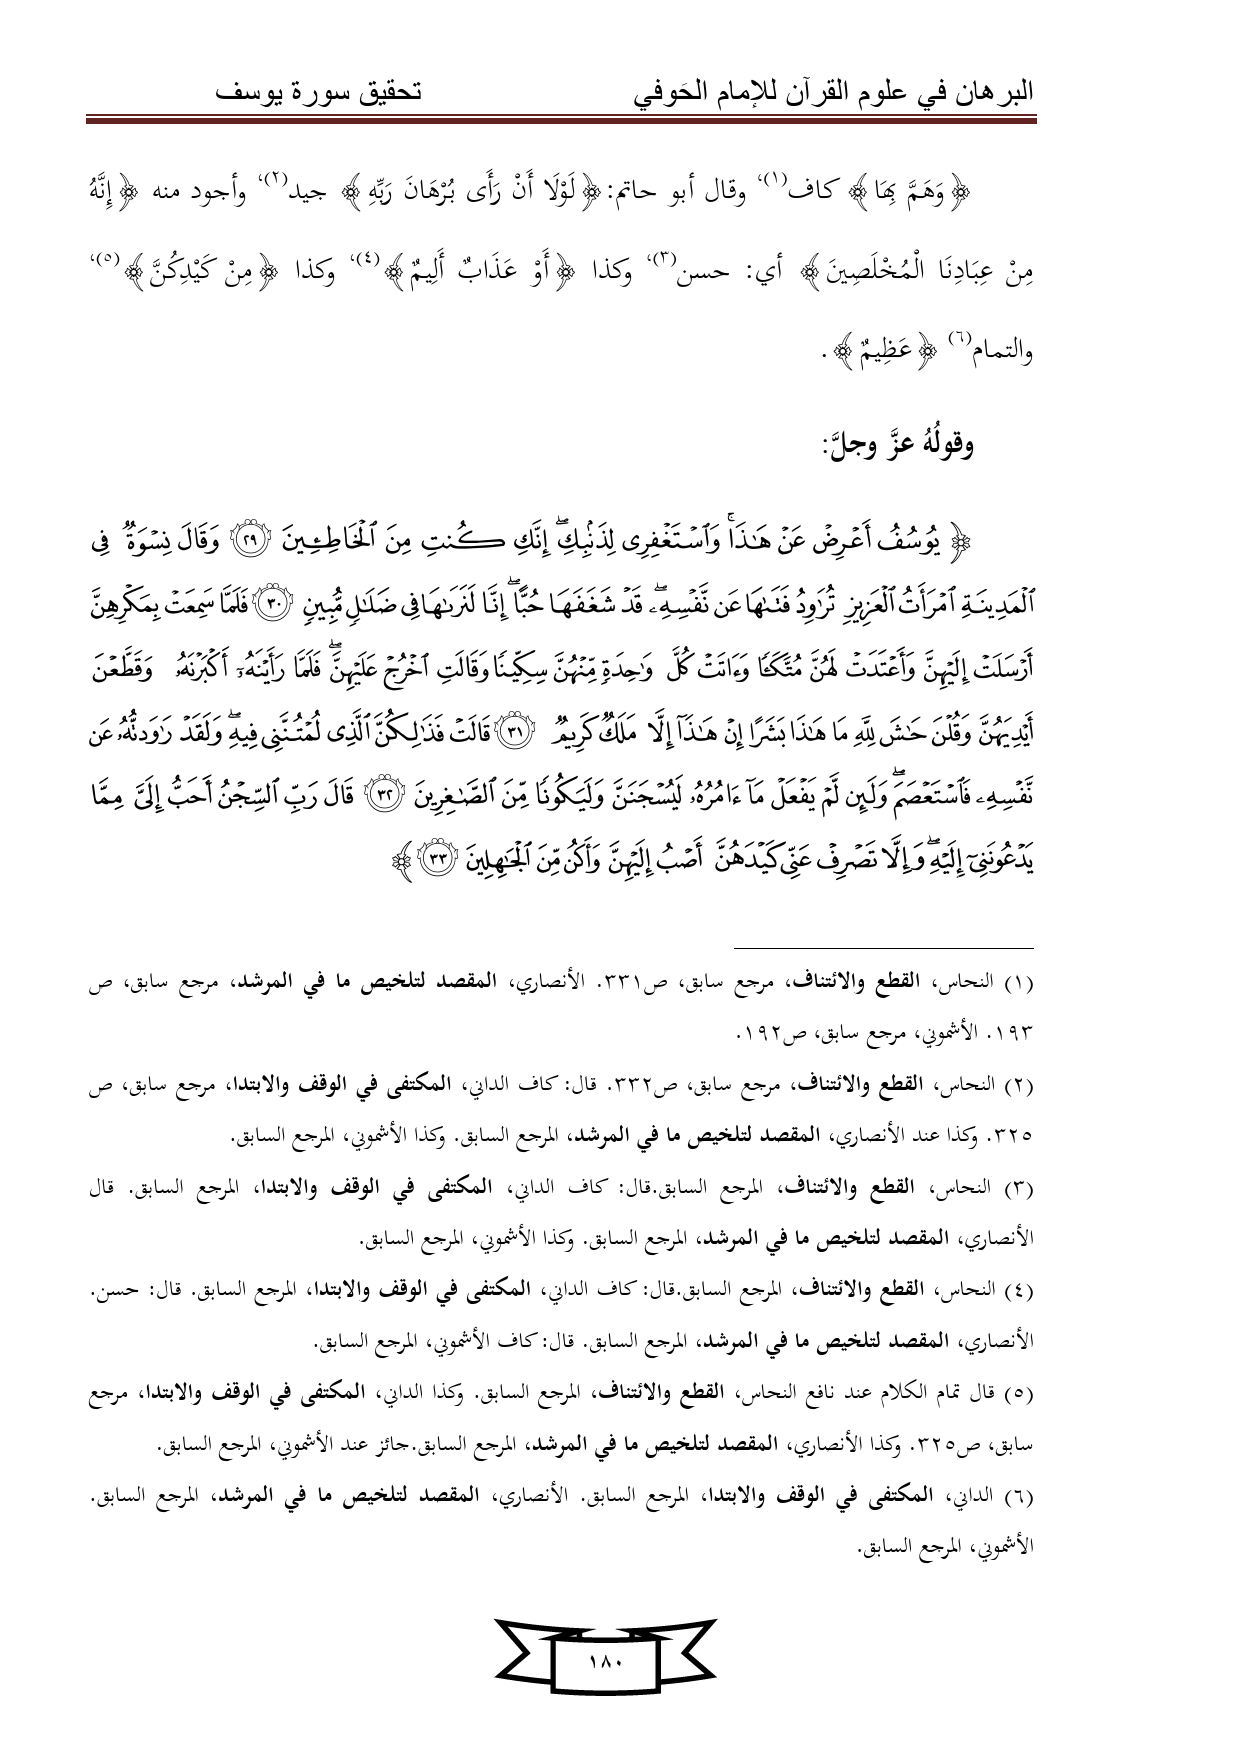 البرهان في علوم القرآن للإمام الحَوفي تحقيق سورة يوسف
﴿وَهَمَّ بِهَا﴾ كاف(١)، وقال أبو حاتم: ﴿لَوْلَا أَنْ رَأَى بُرْهَانَ رَبِّهِ﴾ جيد(٢)، وأجود منه ﴿إِنَّهُ
مِنْ عِبَادِنَا الْمُخْلَصِينَ﴾ أي: حسن(٣)، وكذا ﴿أَوْ عَذَابٌ أَلِيمٌ﴾(٤)، وكذا ﴿مِنْ كَيْدِكُنَّ﴾(٥)،
والتمام(٦) ﴿عَظِيمٌ﴾.
وقولُهُ عزَّ وجلَّ:
﴿يُوسُفُ أَعْرِضْ عَنْ هَٰذَاۚ وَٱسْتَغْفِرِى لِذَنۢبِكِۖ إِنَّكِ كُنتِ مِنَ ٱلْخَاطِـِٔينَ ٢٩ وَقَالَ نِسْوَةٌ فِى
ٱلْمَدِينَةِ ٱمْرَأَتُ ٱلْعَزِيزِ تُرَٰوِدُ فَتَىٰهَا عَن نَّفْسِهِۦۖ قَدْ شَغَفَهَا حُبًّاۖ إِنَّا لَنَرَىٰهَا فِى ضَلَٰلٍ مُّبِينٍ ٣٠ فَلَمَّا سَمِعَتْ بِمَكْرِهِنَّ
أَرْسَلَتْ إِلَيْهِنَّ وَأَعْتَدَتْ لَهُنَّ مُتَّكَـًٔا وَءَاتَتْ كُلَّ وَٰحِدَةٍ مِّنْهُنَّ سِكِّينًا وَقَالَتِ ٱخْرُجْ عَلَيْهِنَّۖ فَلَمَّا رَأَيْنَهُۥٓ أَكْبَرْنَهُۥ وَقَطَّعْنَ
أَيْدِيَهُنَّ وَقُلْنَ حَٰشَ لِلَّهِ مَا هَٰذَا بَشَرًا إِنْ هَٰذَآ إِلَّا مَلَكٌ كَرِيمٌ ٣١ قَالَتْ فَذَٰلِكُنَّ ٱلَّذِى لُمْتُنَّنِى فِيهِۖ وَلَقَدْ رَٰوَدتُّهُۥ عَن
نَّفْسِهِۦ فَٱسْتَعْصَمَۖ وَلَئِن لَّمْ يَفْعَلْ مَآ ءَامُرُهُۥ لَيُسْجَنَنَّ وَلَيَكُونًا مِّنَ ٱلصَّٰغِرِينَ ٣٢ قَالَ رَبِّ ٱلسِّجْنُ أَحَبُّ إِلَىَّ مِمَّا
يَدْعُونَنِىٓ إِلَيْهِۖ وَإِلَّا تَصْرِفْ عَنِّى كَيْدَهُنَّ أَصْبُ إِلَيْهِنَّ وَأَكُن مِّنَ ٱلْجَٰهِلِينَ ٣٣﴾
(١) النحاس، القطع والائتناف، مرجع سابق، ص٣٣١. الأنصاري، المقصد لتلخيص ما في المرشد، مرجع سابق، ص
١٩٣. الأشموني، مرجع سابق، ص١٩٢.
(٢) النحاس، القطع والائتناف، مرجع سابق، ص٣٣٢. قال: كاف الداني، المكتفى في الوقف والابتدا، مرجع سابق، ص
٣٢٥. وكذا عند الأنصاري، المقصد لتلخيص ما في المرشد، المرجع السابق. وكذا الأشموني، المرجع السابق.
(٣) النحاس، القطع والائتناف، المرجع السابق.قال: كاف الداني، المكتفى في الوقف والابتدا، المرجع السابق. قال
الأنصاري، المقصد لتلخيص ما في المرشد، المرجع السابق. وكذا الأشموني، المرجع السابق.
(٤) النحاس، القطع والائتناف، المرجع السابق.قال: كاف الداني، المكتفى في الوقف والابتدا، المرجع السابق. قال: حسن.
الأنصاري، المقصد لتلخيص ما في المرشد، المرجع السابق. قال: كاف الأشموني، المرجع السابق.
(٥) قال تمام الكلام عند نافع النحاس، القطع والائتناف، المرجع السابق. وكذا الداني، المكتفى في الوقف والابتدا، مرجع
سابق، ص٣٢٥. وكذا الأنصاري، المقصد لتلخيص ما في المرشد، المرجع السابق.جائز عند الأشموني، المرجع السابق.
(٦) الداني، المكتفى في الوقف والابتدا، المرجع السابق. الأنصاري، المقصد لتلخيص ما في المرشد، المرجع السابق.
الأشموني، المرجع السابق.
١٨٠